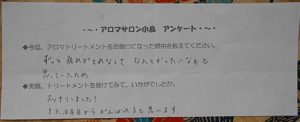 ・～・アロマサロン小島 アンケート・～・
◆今回、アロマトリートメントをお受けになった理由を教えてください。
ずっと疲れがとれなくて なんとかしたいなと
思っていたため
◆実際、トリートメントを受けてみて、いかがでしたか。
スッキリしました！
また明日からがんばれそうと思います